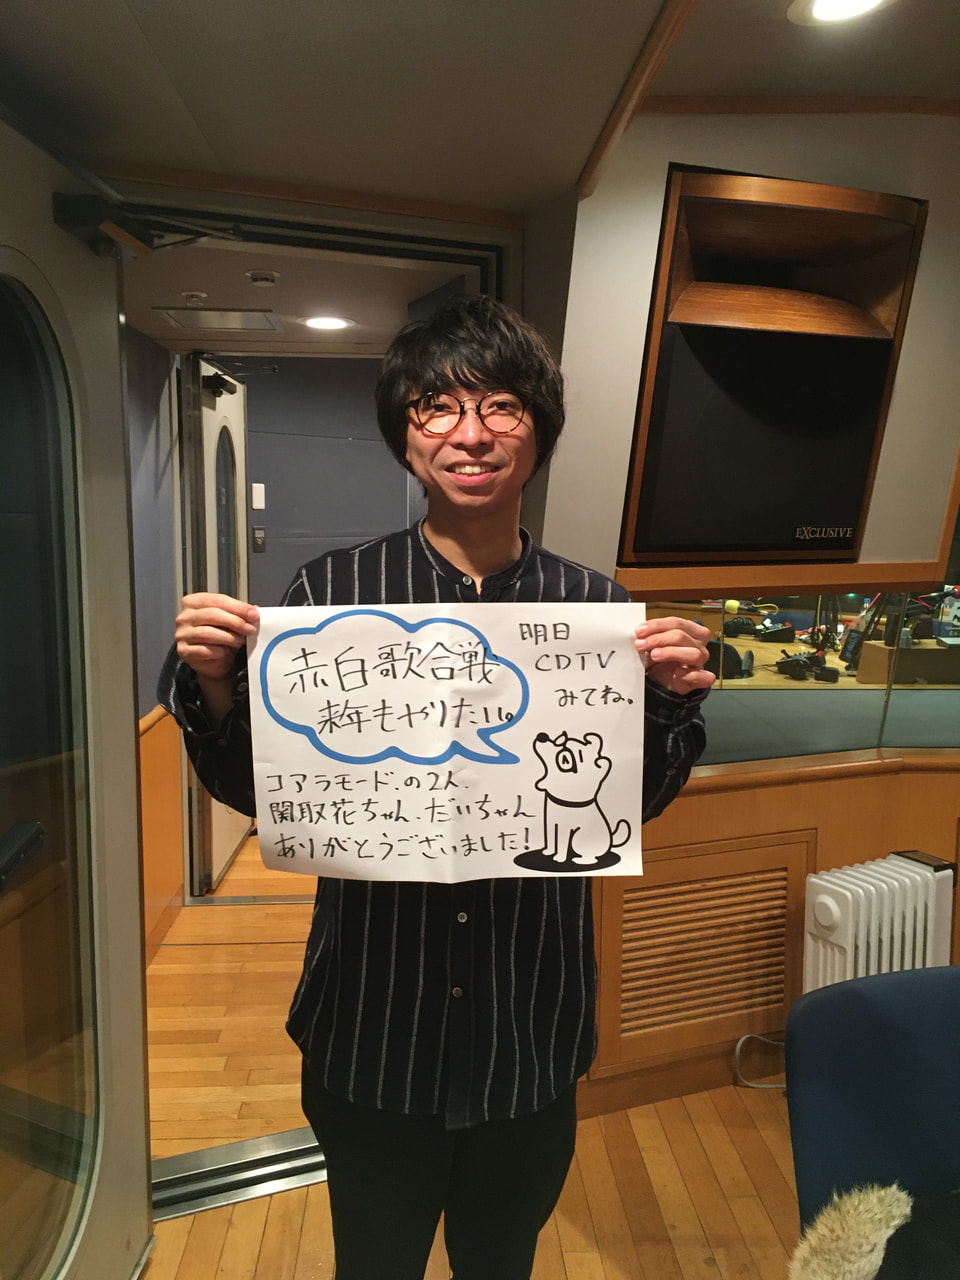 赤白歌合戦
来年もやりたい。
明日
CDTV
みてね。
コアラモード.の2人、
関取花ちゃん、だいちゃん
ありがとうございました!
EXCLUSIVE